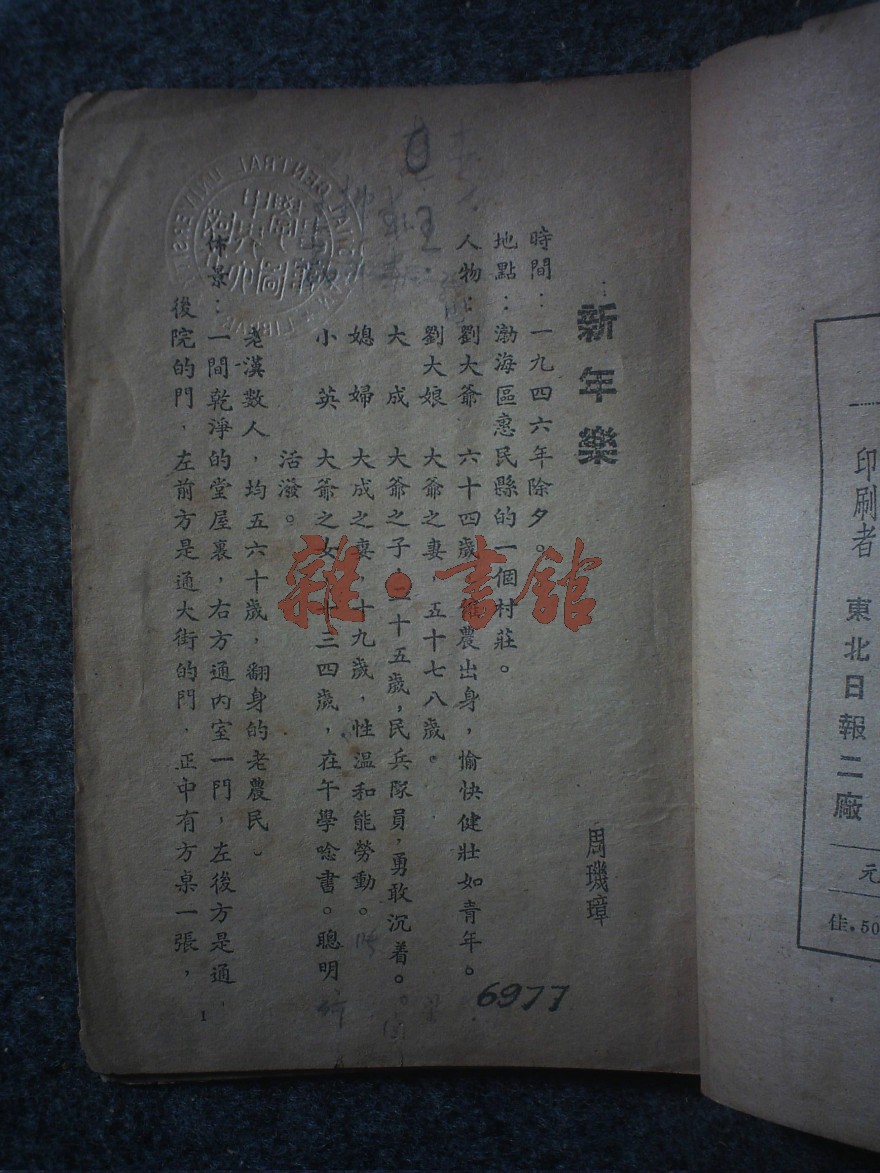 新年樂
周璣璋
時間：一九四六年除夕。
地點：渤海區惠民縣的一個村莊。
人物：劉大爺　六十四歲，農出身，愉快健壯如青年。
劉大娘　大爺之妻，五十七八歲。
大　成　大爺之子，二十五歲，民兵隊員，勇敢沉着。
媳　婦　大成之妻，十九歲，性溫和能勞動。
小　英　大爺之女，十三四歲，在午學唸書。聰明
活潑。
老漢數人，均五六十歲，翻身的老農民。
佈景：一間乾淨的堂屋裏，右方通內室一門，左後方是通
後院的門，左前方是通大街的門，正中有方桌一張，
1
6977
雜·書館
印刷者　東北日報二廠
元
佳.50